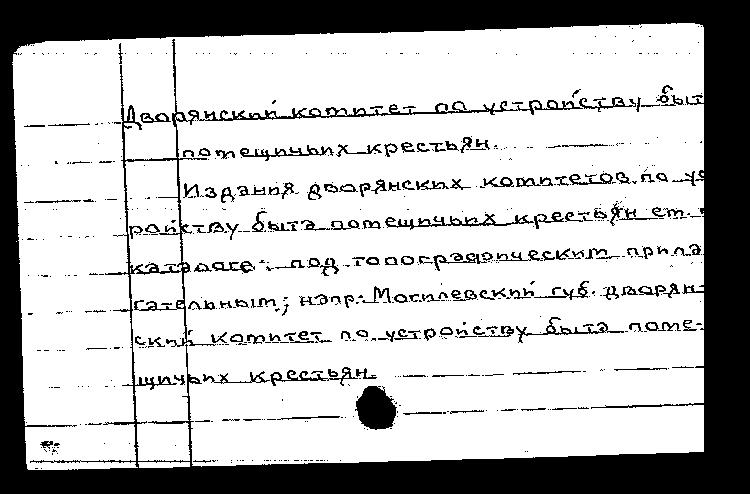 Дворянский комитет по устройству быт
помещичьих крестьян.
Издания дворянских комитетов по ус
ройству быта помещичьих крестьян см. в
каталоге: под топографическим прила
гательным; напр.: Могилевский губ. дворян-
ский комитет по устройству быта поме-
щичьих крестьян.